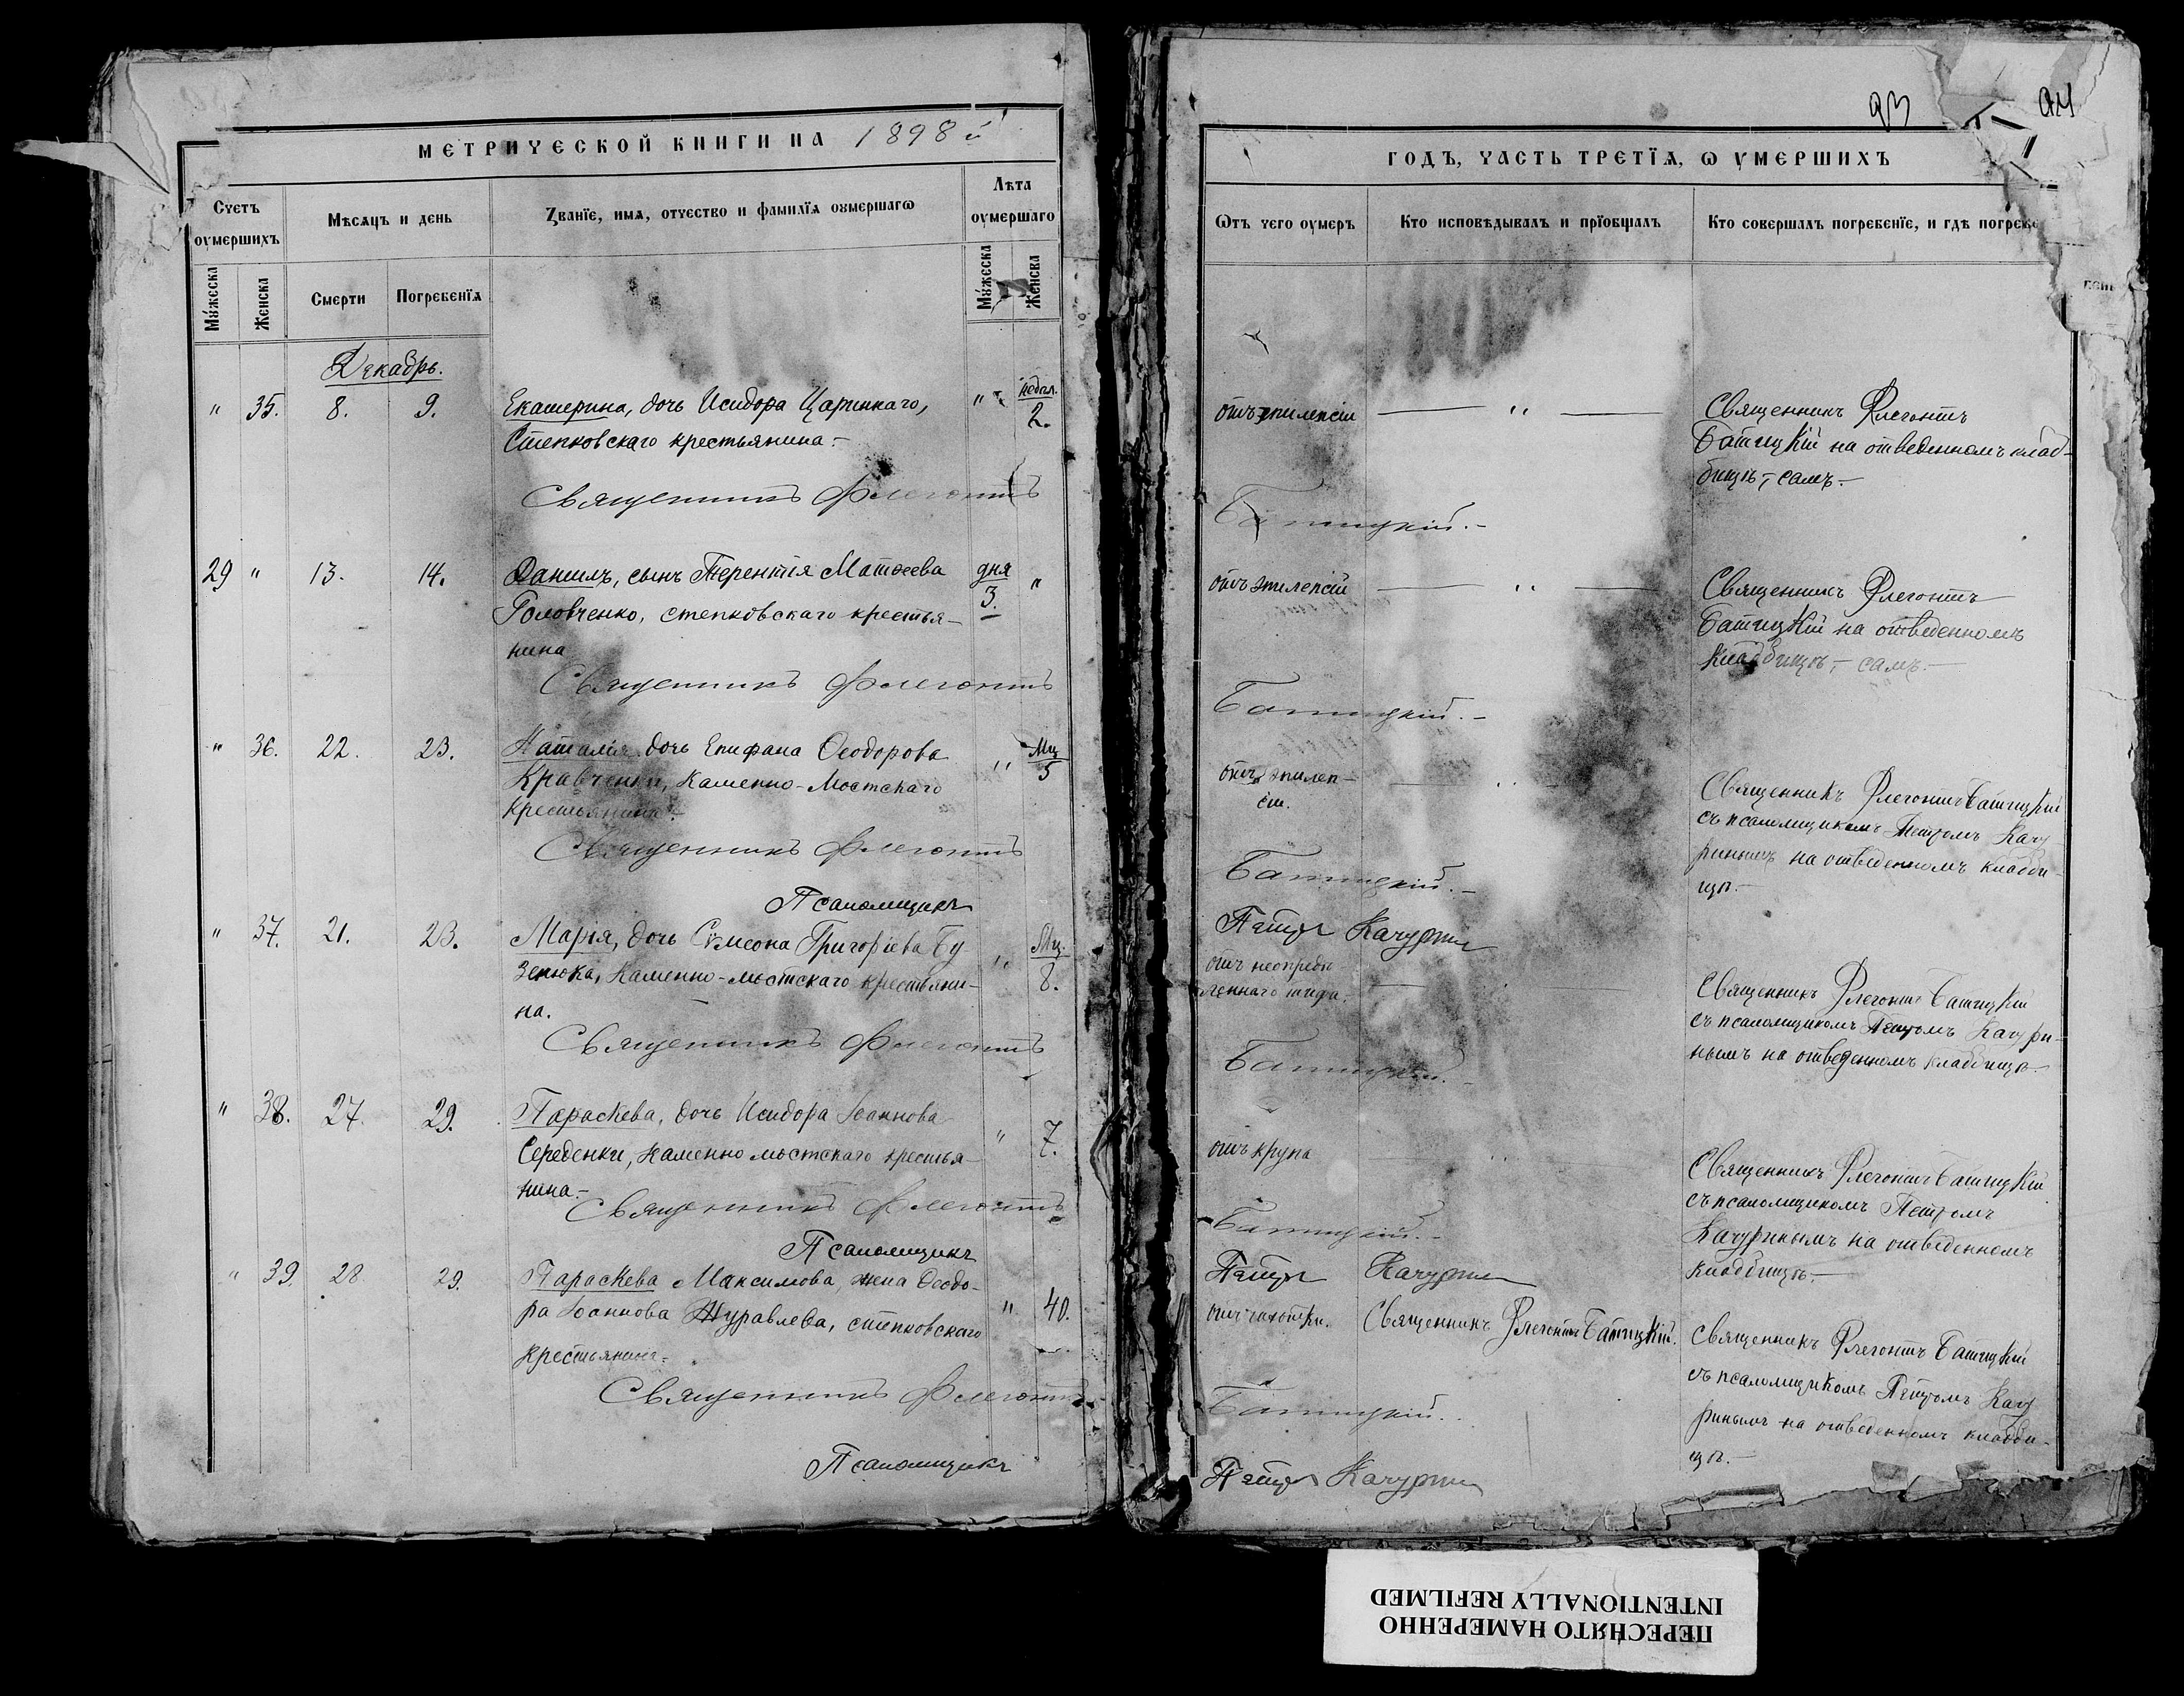 МЕТРИЧЕСКОЙ КНИГИ НА 1898 й
Счетъ оумершихъ
Мѣсяцъ и день
Званїе, имя, отчество и фамилїя оумершагѡ
Лѣта оумершаго
Мужеска
Женска
Смерти
Погребенїя
Мужеска
Женска
Декабрь.
" 35. 8. 9. Екатерина, дочь Исидора Царинкаго, " недѣл. 2.
Степковскаго крестьянина.-
Священникъ Флегонтъ
29 " 13. 14. Даниилъ, сынъ Терентія Матѳеева дня 3. "
Головченко, степковскаго крестья-
нина
Священникъ Флегонтъ
" 36. 22. 23. Наталія дочь Епифана Ѳеодорова " Мц 5
Кравченки, Каменно-Мостскаго
крестьянина.-
Священникъ Флегонтъ
Псаломщикъ
" 37. 21. 23. Марія, дочь Сѵмеона Григоріева Бу " Мц. 8.
зенюка, Каменно-мостскаго крестьяни-
на.
Священникъ Флегонтъ
" 38. 27. 29. Параскева, дочь Исидора Іоаннова " 7.
Середенки, Каменно мостскаго крестья-
нина.-
Священникъ Флегонтъ
Псаломщикъ
" 39. 28. 29. Параскева Максимова, жена Ѳеодо- " 40.
ра Іоаннова Журавлева, степковскаго
крестьянина.
Священникъ Флегонтъ
Псаломщикъ
93 94
ГОДЪ, ЧАСТЬ ТРЕТЇЯ, Ѡ УМЕРШИХЪ
Ѿтъ чего оумеръ
Кто исповѣдывалъ и прїобщалъ
Кто совершалъ погребенїе, и гдѣ погребе
отъ эпилепсіи — " — Священникъ Флегонтъ
Батицкій на отведенномъ клад-
бищѣ, самъ.-
Батицкій.-
отъ эпилепсій — " — Священникъ Флегонтъ
Батицкій на отведенномъ
кладбищѣ, самъ.-
Батицкій.-
отъ эпилеп-
сіи.
Священникъ Флегонтъ Батицкій
съ псаломщикомъ Петромъ Качу
ринымъ на отведенномъ кладби-
щѣ.-
Батицкій.-
Петръ Качуринъ
отъ неопредѣ
леннаго тифа.
Священникъ Флегонтъ Батицкій
съ псаломщикомъ Петромъ Качури-
нымъ на отведенномъ кладбищѣ.
Батицкій.-
отъ крупа
Священникъ Флегонтъ Батицкій
съ псаломщикомъ Петромъ
Качуринымъ на отведенномъ
кладбищѣ.-
Батицкій.-
Петръ Качуринъ
отъ чахотки. Священникъ Флегонтъ Батицкій.
Священникъ Флегонтъ Батицкій
съ псаломщикомъ Петромъ Качу
ринымъ на отведенномъ кладби-
щѣ.-
Батицкій.
Петръ Качуринъ
ПЕРЕСНЯТО НАМЕРЕННО
INTENTIONALLY REFILMED